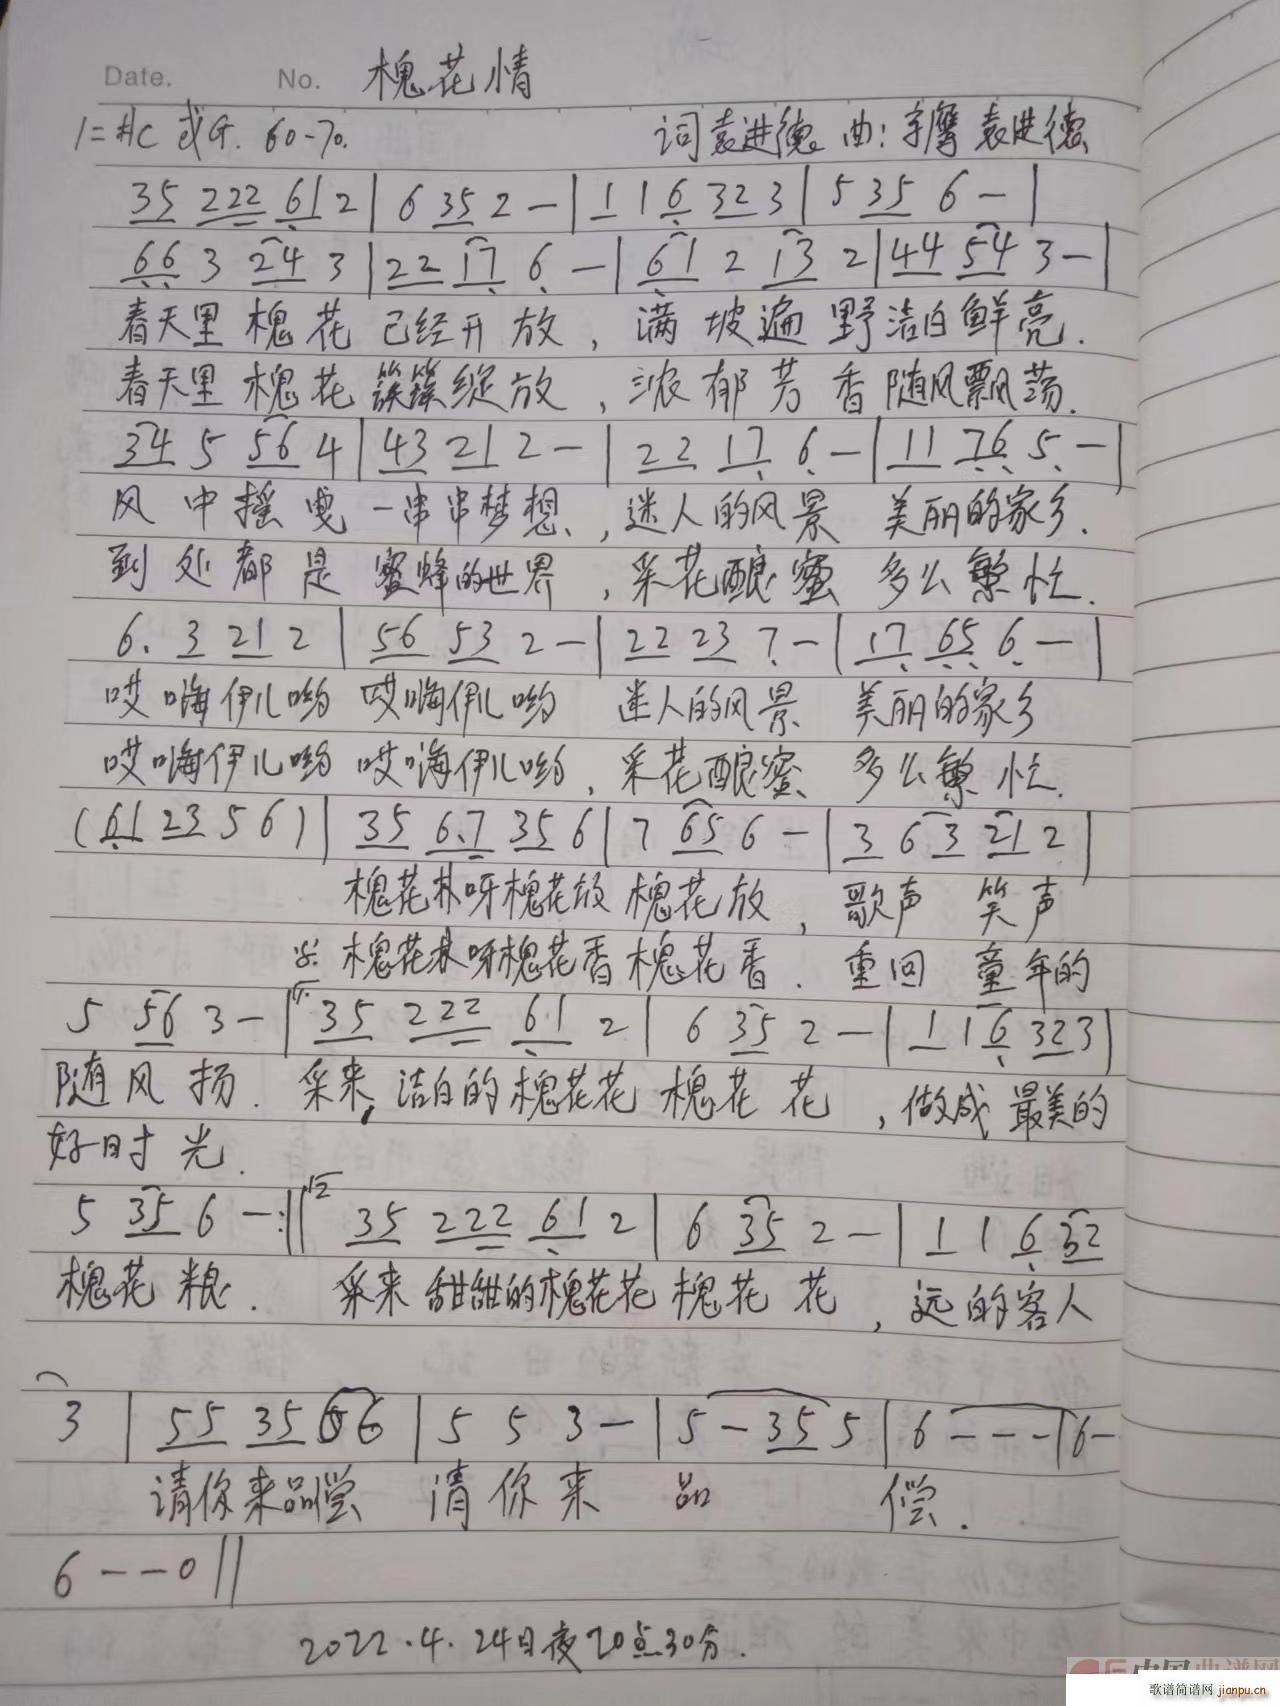 Date. No. 槐花情
1=#C 或G. 60-70. 词袁进德 曲:字鹰 袁进德
35 222 61 2 | 6 35 2 - | 1 1 6 32 3 | 5 35 6 - |
66 3 24 3 | 22 17 6 - | 61 2 13 2 | 44 54 3 - |
春天里 槐花 已经开放, 满坡遍野洁白鲜亮.
春天里 槐花 簇簇绽放, 浓郁芳香随风飘荡.
34 5 56 4 | 43 21 2 - | 22 17 6 - | 11 76 5 - |
风中摇曳 一串串梦想, 迷人的风景 美丽的家乡.
到处都是 蜜蜂的世界, 采花酿蜜 多么繁忙.
6. 3 21 2 | 56 53 2 - | 22 23 7 - | 17 65 6 - |
哎嗨伊儿哟 哎嗨伊儿哟 迷人的风景 美丽的家乡
哎嗨伊儿哟 哎嗨伊儿哟, 采花酿蜜 多么繁忙.
(61 23 5 6) | 35 6.7 35 6 | 7 65 6 - | 3 6 3 21 2 |
槐花林呀槐花放 槐花放, 歌声 笑声
槐花林呀槐花香 槐花香. 重回 童年的
5 56 3 - | 1. 35 222 61 2 | 6 35 2 - | 1 1 6 32 3 |
随风扬. 采来 洁白的槐花花 槐花花, 做成最美的
好时光.
5 35 6 - :|| 2 35 222 61 2 | 6 35 2 - | 1 1 6 32
槐花粮. 采来 甜甜的槐花花 槐花花, 远的客人
3 | 55 35 66 | 5 5 3 - | 5 - 35 5 | 6 - - - | 6 -
请你来品尝 请你来 品 偿.
6 - - 0 ||
2022.4.24日夜20点30分.
中国曲谱网
歌谱简谱网 jianpu.cn